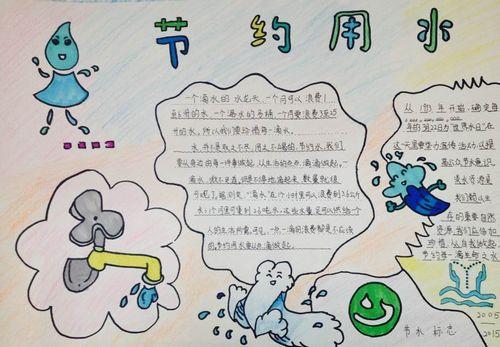 节约用水
一个滴水的水龙头,一个月可以浪费1
至6吨的水,一个漏水的马桶,一个月要浪费3至25
吨的水。所以我们要珍惜每一滴水。
水并不是取之不尽,用之不竭的。节约水,我们
要从身边的每一件事做起,从生活的点点滴滴做起,一
滴水,微不足道,但是不停地滴起来,数量就很
可观了。据测定,“滴水”在1个小时里可以浪费到3.6公斤
水;1个月里可集到2.6吨水,这些水量足可以供给一个
人的生活所需。可见,一点一滴的浪费都是不应该
的。节约用水要从滴做起。
从1993年开始,确定每
年的3月22日为“世界水日”在
这一天要集中宣传活动,以提
高公众节水意识。
淡水资源是
我们赖以生
存的重要自然
资源,我们应倍加
珍惜,从自我做起,
节约每一滴生命之水
节水 标志
2005
2015